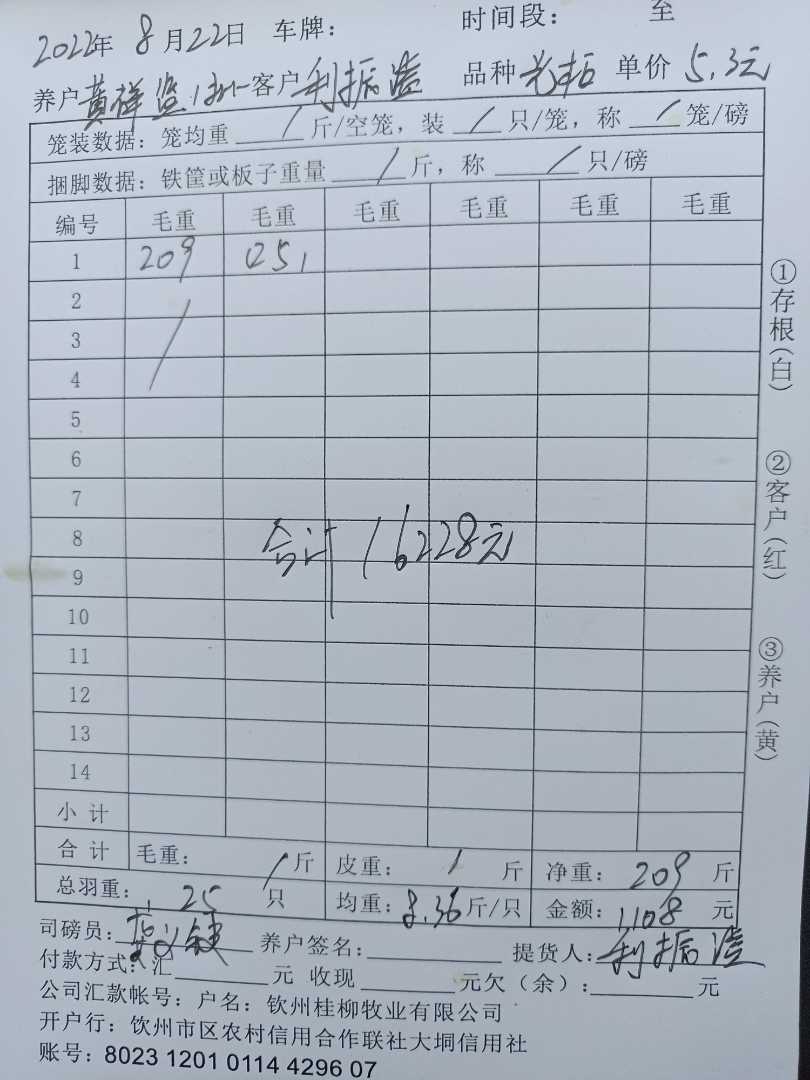 2022年 8月22日 车牌： 时间段： 至
养户 黄祥 客户 利振 品种 单价 5.3元
笼装数据：笼均重 / 斤/空笼，装 / 只/笼，称 / 笼/磅
捆脚数据：铁筐或板子重量 / 斤，称 / 只/磅
编号 毛重 毛重 毛重 毛重 毛重 毛重
1 209 (25)
2
3
4
5
6
7
8 合计 16228元
9
10
11
12
13
14
小 计
合 计 毛重： / 斤 皮重： / 斤 净重： 209 斤
总羽重： 25 只 均重：8.36斤/只 金额：1108 元
司磅员： 养户签名： 提货人：利振
付款方式：汇 元 收现 元欠（余）： 元
公司汇款帐号：户名：钦州桂柳牧业有限公司
开户行：钦州市区农村信用合作联社大垌信用社
账号：8023 1201 0114 4296 07
①存根（白）
②客户（红）
③养户（黄）